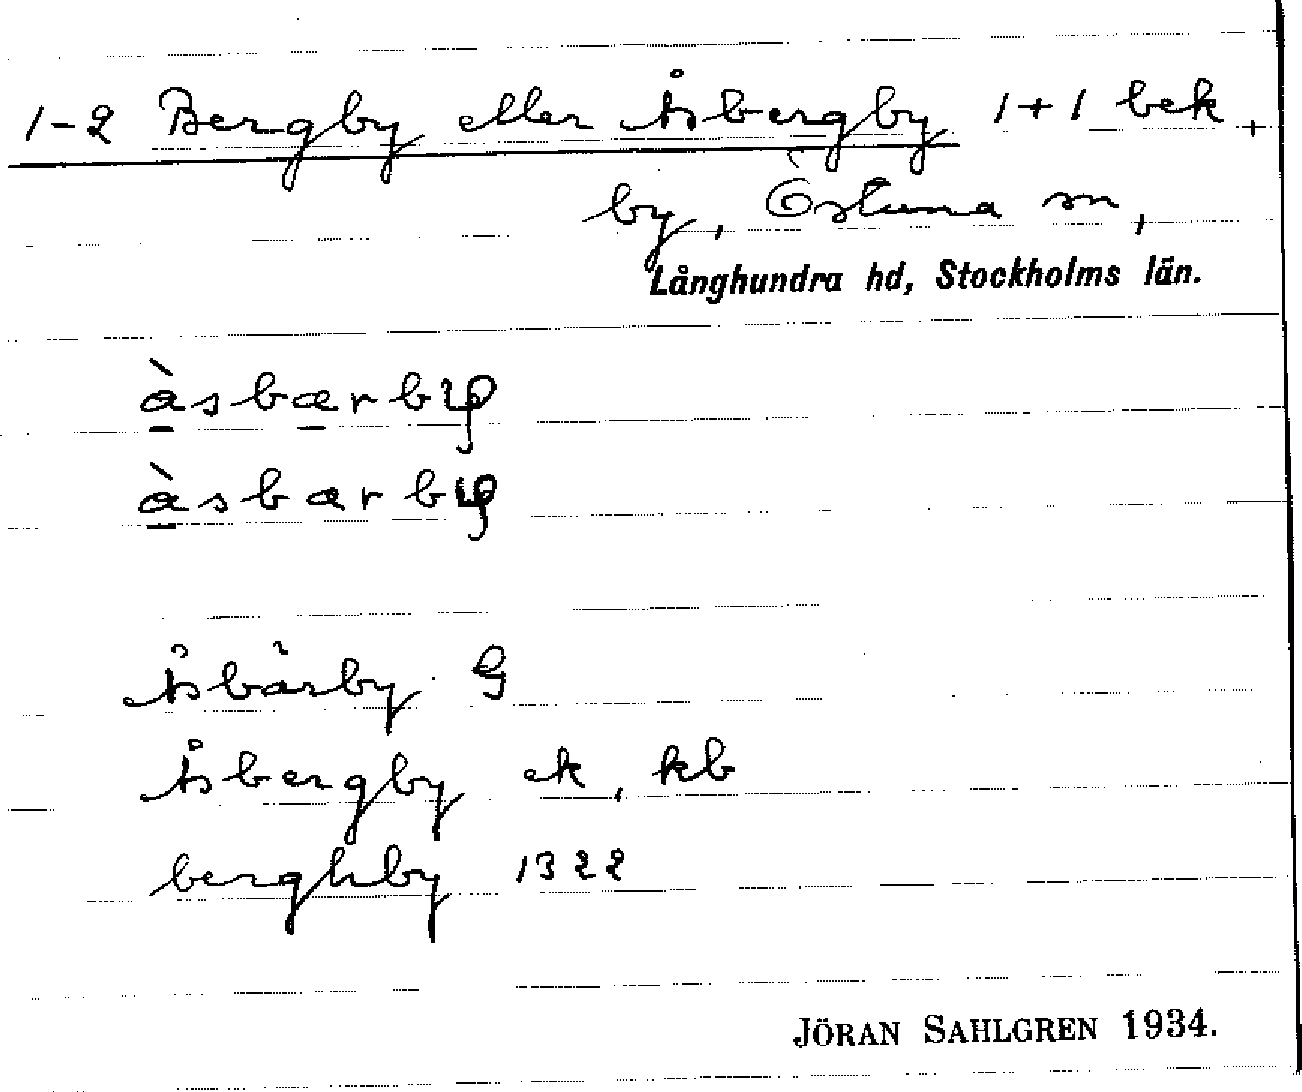 1-2 Bergby eller Åsbergby 1+1 bek,
by, Östuna sn,
Långhundra hd, Stockholms län.
Åsbärby G
Åsbergby ek, kb
berghby 1322
JÖRAN SAHLGREN 1934.